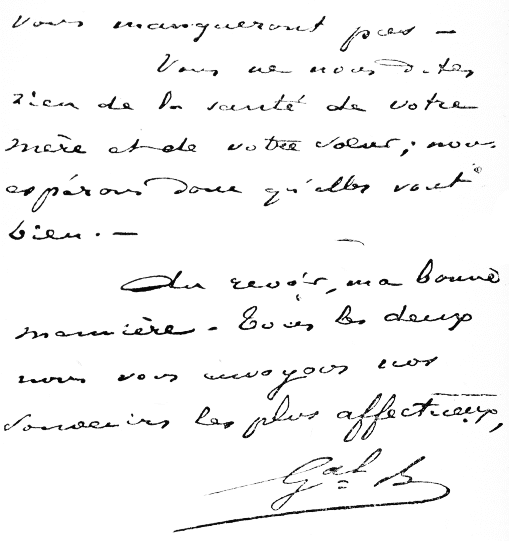 vous manqueront pas —
Vous ne nous dites
rien de la santé de votre
mère et de votre sœur ; nous
espérons donc qu'elles vont
bien. —
Au revoir, ma bonne
meunière. Tous les deux
nous vous envoyons nos
souvenirs les plus affectueux,
Gal B